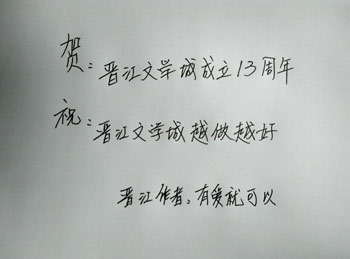 贺：晋江文学城成立13周年
祝：晋江文学城越做越好
晋江作者：有爱就可以